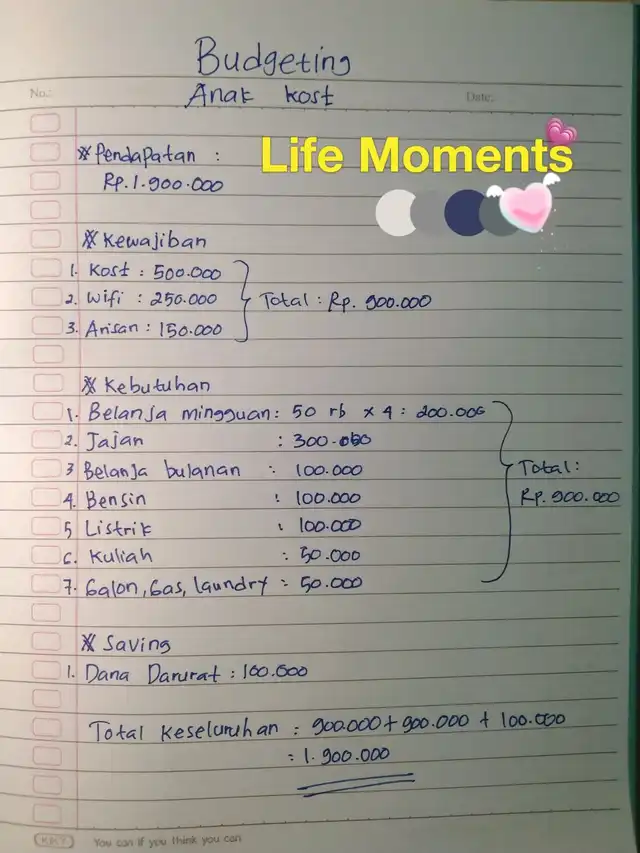 Budgeting
Anak kost
No.:
Date:
Life Moments
※ Pendapatan :
Rp. 1.900.000
※ Kewajiban
1. Kost : 500.000
2. Wifi : 250.000
3. Arisan : 150.000
Total : Rp. 900.000
※ Kebutuhan
1. Belanja mingguan : 50 rb x 4 : 200.000
2. Jajan : 300.000
3 Belanja bulanan : 100.000
4. Bensin : 100.000
5 Listrik : 100.000
6. Kuliah : 50.000
7. Galon, Gas, laundry : 50.000
Total :
Rp. 900.000
※ Saving
1. Dana Darurat : 100.000
Total Keseluruhan : 900.000 + 900.000 + 100.000
: 1.900.000
KIKY You can if you think you can